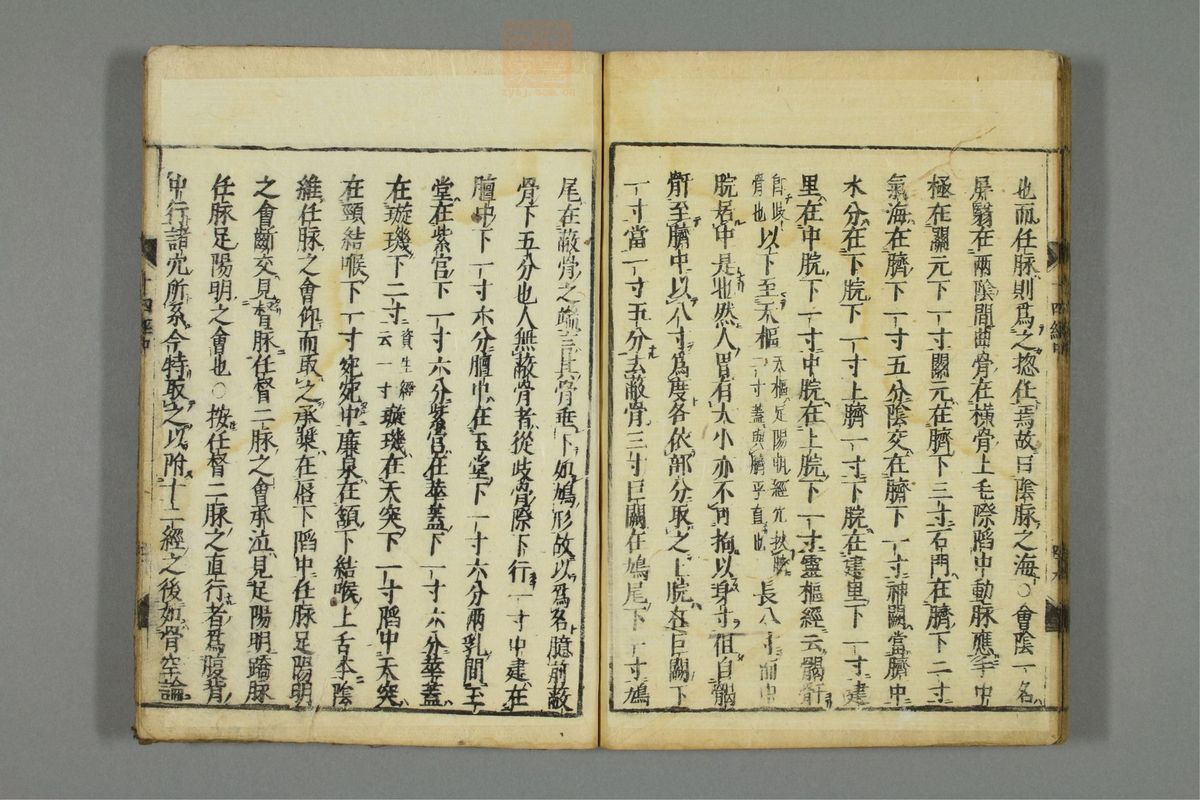 也而任脉則爲之揔任焉故曰陰脉之海○會陰一名
屏翳在兩陰間曲骨在橫骨上毛際陷中動脉應手中
極在關元下一寸關元在臍下三寸石門在臍下二寸
氣海在臍下一寸五分陰交在臍下一寸神闕當臍中
水分在下脘下一寸上臍一寸下脘在建里下一寸建
里在中脘下一寸中脘在上脘下一寸靈樞經云𩩲骬
骨也以下至天樞天樞足陽明經穴挾臍一寸蓋與臍平直也長八寸而中
脘居中是也然人胃有大小亦不可拘以身寸但自𩩲
骬至臍中以八寸爲度各依部分取之上脘在巨闕下
一寸當一寸五分去蔽骨三寸巨闕在鳩尾下一寸鳩
尾在蔽骨之端言其骨垂下如鳩形故以爲名臆前蔽
骨下五分也人無蔽骨者從歧骨際下行一寸中庭在
膻中下一寸六分膻中在玉堂下一寸六分兩乳間玉
堂在紫宮下一寸六分紫宮在華蓋下一寸六分華蓋
在璇璣下二寸資生經云一寸璇璣在天突下一寸陷中天突
在頸結喉下一寸宛宛中廉泉在頷下結喉上舌本陰
維任脉之會仰而取之承漿在唇下陷中任脉足陽明
之會齗交見督脉任督二脉之會承泣見足陽明蹻脉
任脉足陽明之會也○按任督二脉之直行者爲腹背
中行諸穴所系今特取之以附十二經之後如骨空論
十四經中